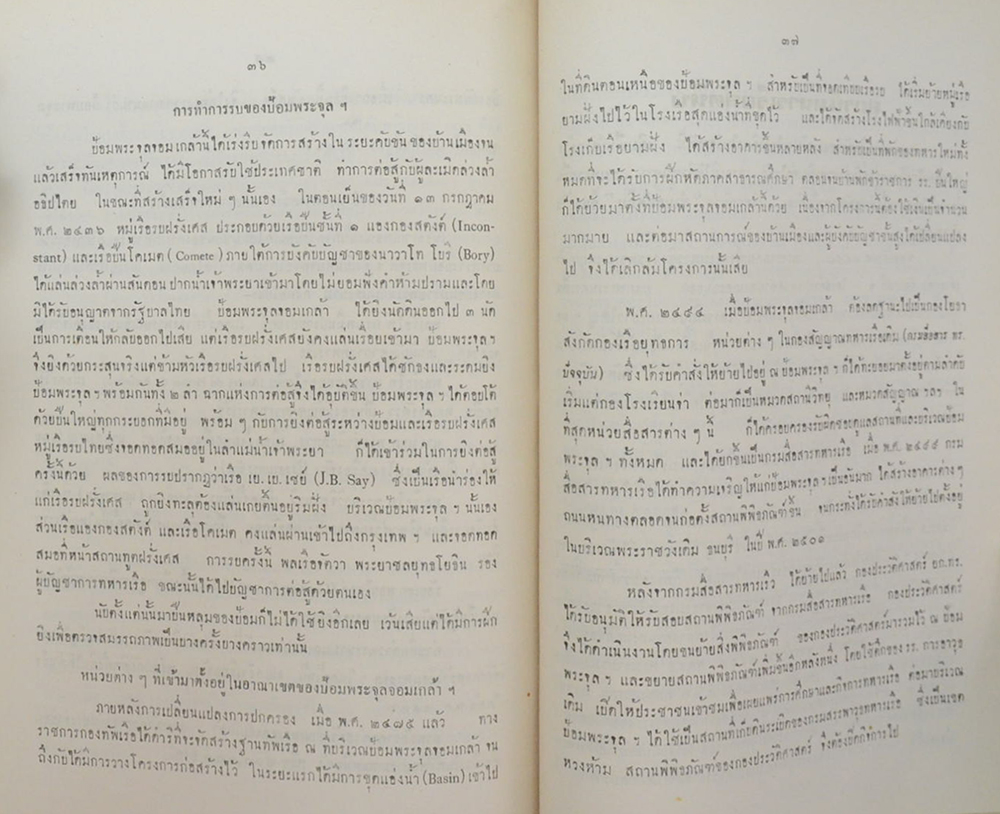 ๓๖
การทำการรบของป้อมพระจุล ฯ
ป้อมพระจุลจอมเกล้านี้ได้เร่งรีบจัดการสร้างใน ระยะคับขันของบ้านเมืองจน
แล้วเสร็จทันเหตุการณ์ ได้มีโอกาสรับใช้ประเทศชาติ ทำการต่อสู้กับผู้ละเมิดล่วงล้ำ
อธิปไตย ในขณะที่สร้างเสร็จใหม่ ๆ นั้นเอง ในตอนเย็นของวันที่ ๑๓ กรกฎาคม
พ.ศ. ๒๔๓๖ หมู่เรือรบฝรั่งเศส ประกอบด้วยเรือปืนชั้นที่ ๑ แองกองสตังต์ (Incon-
stant) และเรือปืนโคเมต (Comete) ภายใต้การบังคับบัญชาของนาวาโท โบรี (Bory)
ได้แล่นล่วงล้ำผ่านสันดอน ปากน้ำเจ้าพระยาเข้ามาโดยไม่ยอมฟังคำห้ามปรามและโดย
มิได้รับอนุญาตจากรัฐบาลไทย ป้อมพระจุลจอมเกล้า ได้ยิงนัดดินออกไป ๓ นัด
เป็นการเตือนให้กลับออกไปเสีย แต่เรือรบฝรั่งเศสยังคงแล่นเรื่อยเข้ามา ป้อมพระจุลฯ
จึงยิงด้วยกระสุนจริงแต่ข้ามหัวเรือรบฝรั่งเศสไป เรือรบฝรั่งเศสได้ชักธงและระดมยิง
ป้อมพระจุล ฯ พร้อมกันทั้ง ๒ ลำ ฉากแห่งการต่อสู้จึงได้อุบัติขึ้น ป้อมพระจุล ฯ ได้ตอบโต้
ด้วยปืนใหญ่ทุกกระบอกที่มีอยู่ พร้อม ๆ กับการยิงต่อสู้ระหว่างป้อมและเรือรบฝรั่งเศส
หมู่เรือรบไทยซึ่งจอดทอดสมออยู่ในลำแม่น้ำเจ้าพระยา ก็ได้เข้าร่วมในการยิงต่อสู้
ครั้งนี้ด้วย ผลของการรบปรากฏว่าเรือ เย. เบ. เซย์ (J.B. Say) ซึ่งเป็นเรือนำร่องให้
แก่เรือรบฝรั่งเศส ถูกยิงทะลุต้องแล่นเกยตื้นอยู่ริมฝั่ง บริเวณป้อมพระจุล ฯ นั้นเอง
ส่วนเรือแองกองสตังต์ และเรือโคเมต คงแล่นผ่านเข้าไปถึงกรุงเทพ ฯ และจอดทอด
สมอที่หน้าสถานทูตฝรั่งเศส การรบครั้งนี้ พลเรือจัตวา พระยาชลยุทธโยธิน รอง
ผู้บัญชาการทหารเรือ ขณะนั้นได้ไปบัญชาการต่อสู้ด้วยตนเอง
นับตั้งแต่นั้นมาปืนหลุมของป้อมก็ไม่ได้ใช้ยิงอีกเลย เว้นเสียแต่ได้มีการฝึก
ยิงเพื่อตรวจสมรรถภาพเป็นบางครั้งบางคราวเท่านั้น
หน่วยต่าง ๆ ที่เข้ามาตั้งอยู่ในอาณาเขตของป้อมพระจุลจอมเกล้า ฯ
ภายหลังการเปลี่ยนแปลงการปกครอง เมื่อ พ.ศ. ๒๔๗๕ แล้ว ทาง
ราชการกองทัพเรือได้ดำริที่จะจัดสร้างฐานทัพเรือ ณ ที่บริเวณป้อมพระจุลจอมเกล้า จน
ถึงกับได้มีการวางโครงการก่อสร้างไว้ ในระยะแรกได้มีการขุดแอ่งน้ำ (Basin) เข้าไป
๓๗
ในที่ดินตอนเหนือของป้อมพระจุล ฯ สำหรับเป็นที่จอดเทียบเรือรบ ได้เริ่มย้ายหมู่เรือ
ยามฝั่งไปไว้ในโรงเรือสุดแอ่งน้ำที่ขุดไว้ และได้จัดสร้างโรงไฟฟ้าขึ้นใกล้เคียงกับ
โรงเก็บเรือยามฝั่ง ได้สร้างอาคารขึ้นหลายหลัง สำหรับเป็นที่พักของทหารใหม่ทั้ง
หมดที่จะได้รับการฝึกหัดภาคสาธารณศึกษา ตลอดจนบ้านพักข้าราชการ รร. ปืนใหญ่
ก็ได้ย้ายมาตั้งที่ป้อมพระจุลจอมเกล้านี้ด้วย เนื่องจากโครงการนี้ต้องใช้เงินเป็นจำนวน
มากมาย และต่อมาสถานการณ์ของบ้านเมืองและผู้บังคับบัญชาชั้นสูงได้เปลี่ยนแปลง
ไป จึงได้เลิกล้มโครงการนั้นเสีย
พ.ศ. ๒๔๙๔ เมื่อป้อมพระจุลจอมเกล้า ต้องลดฐานะไปเป็นกองโยธา
สังกัดกองเรือยุทธการ หน่วยต่าง ๆ ในกองสัญญาณทหารเรือเดิม (กรมสื่อสาร ทร.
ปัจจุบัน) ซึ่งได้รับคำสั่งให้ย้ายไปอยู่ ณ ป้อมพระจุล ฯ ก็ได้ทะยอยมาตั้งอยู่ตามลำดับ
เริ่มแต่กองโรงเรียนจ่า ต่อมาก็เป็นหมวดสถานีวิทยุ และหมวดสัญญาณ ฯลฯ ใน
ที่สุดหน่วยสื่อสารต่าง ๆ นี้ ก็ได้ครอบครองรับผิดชอบดูแลสถานที่และบริเวณป้อม
พระจุล ฯ ทั้งหมด และได้ยกขึ้นเป็นกรมสื่อสารทหารเรือ เมื่อ พ.ศ. ๒๔๙๙ กรม
สื่อสารทหารเรือได้ทำความเจริญให้แก่ป้อมพระจุล ฯ เป็นอันมาก ได้สร้างอาคารต่าง ๆ
ถนนหนทางตลอดจนก่อตั้งสถานพิพิธภัณฑ์ขึ้น จนกระทั่งได้รับคำสั่งให้ย้ายไปตั้งอยู่
ในบริเวณพระราชวังเดิม ธนบุรี ในปี พ.ศ. ๒๕๐๑
หลังจากกรมสื่อสารทหารเรือ ได้ย้ายไปแล้ว กองประวัติศาสตร์ ยก.ทร.
ได้รับอนุมัติให้รับสอบสถานพิพิธภัณฑ์ จากกรมสื่อสารทหารเรือ กองประวัติศาสตร์
จึงได้ดำเนินงานโดยขนย้ายสิ่งพิพิธภัณฑ์ ของกองประวัติศาสตร์มารวมไว้ ณ ป้อม
พระจุล ฯ และขยายสถานพิพิธภัณฑ์เพิ่มขึ้นอีกหลังหนึ่ง โดยใช้ตึกของ รร. การอาวุธ
เดิม เปิดให้ประชาชนเข้าชมเพื่อเผยแพร่การศึกษาและกิจการทหารเรือ ต่อมาบริเวณ
ป้อมพระจุล ฯ ได้ใช้เป็นสถานที่เก็บดินระเบิดของกรมสรรพาวุธทหารเรือ ซึ่งเป็นเขต
หวงห้าม สถานพิพิธภัณฑ์ของกองประวัติศาสตร์ จึงต้องปิดกิจการไป